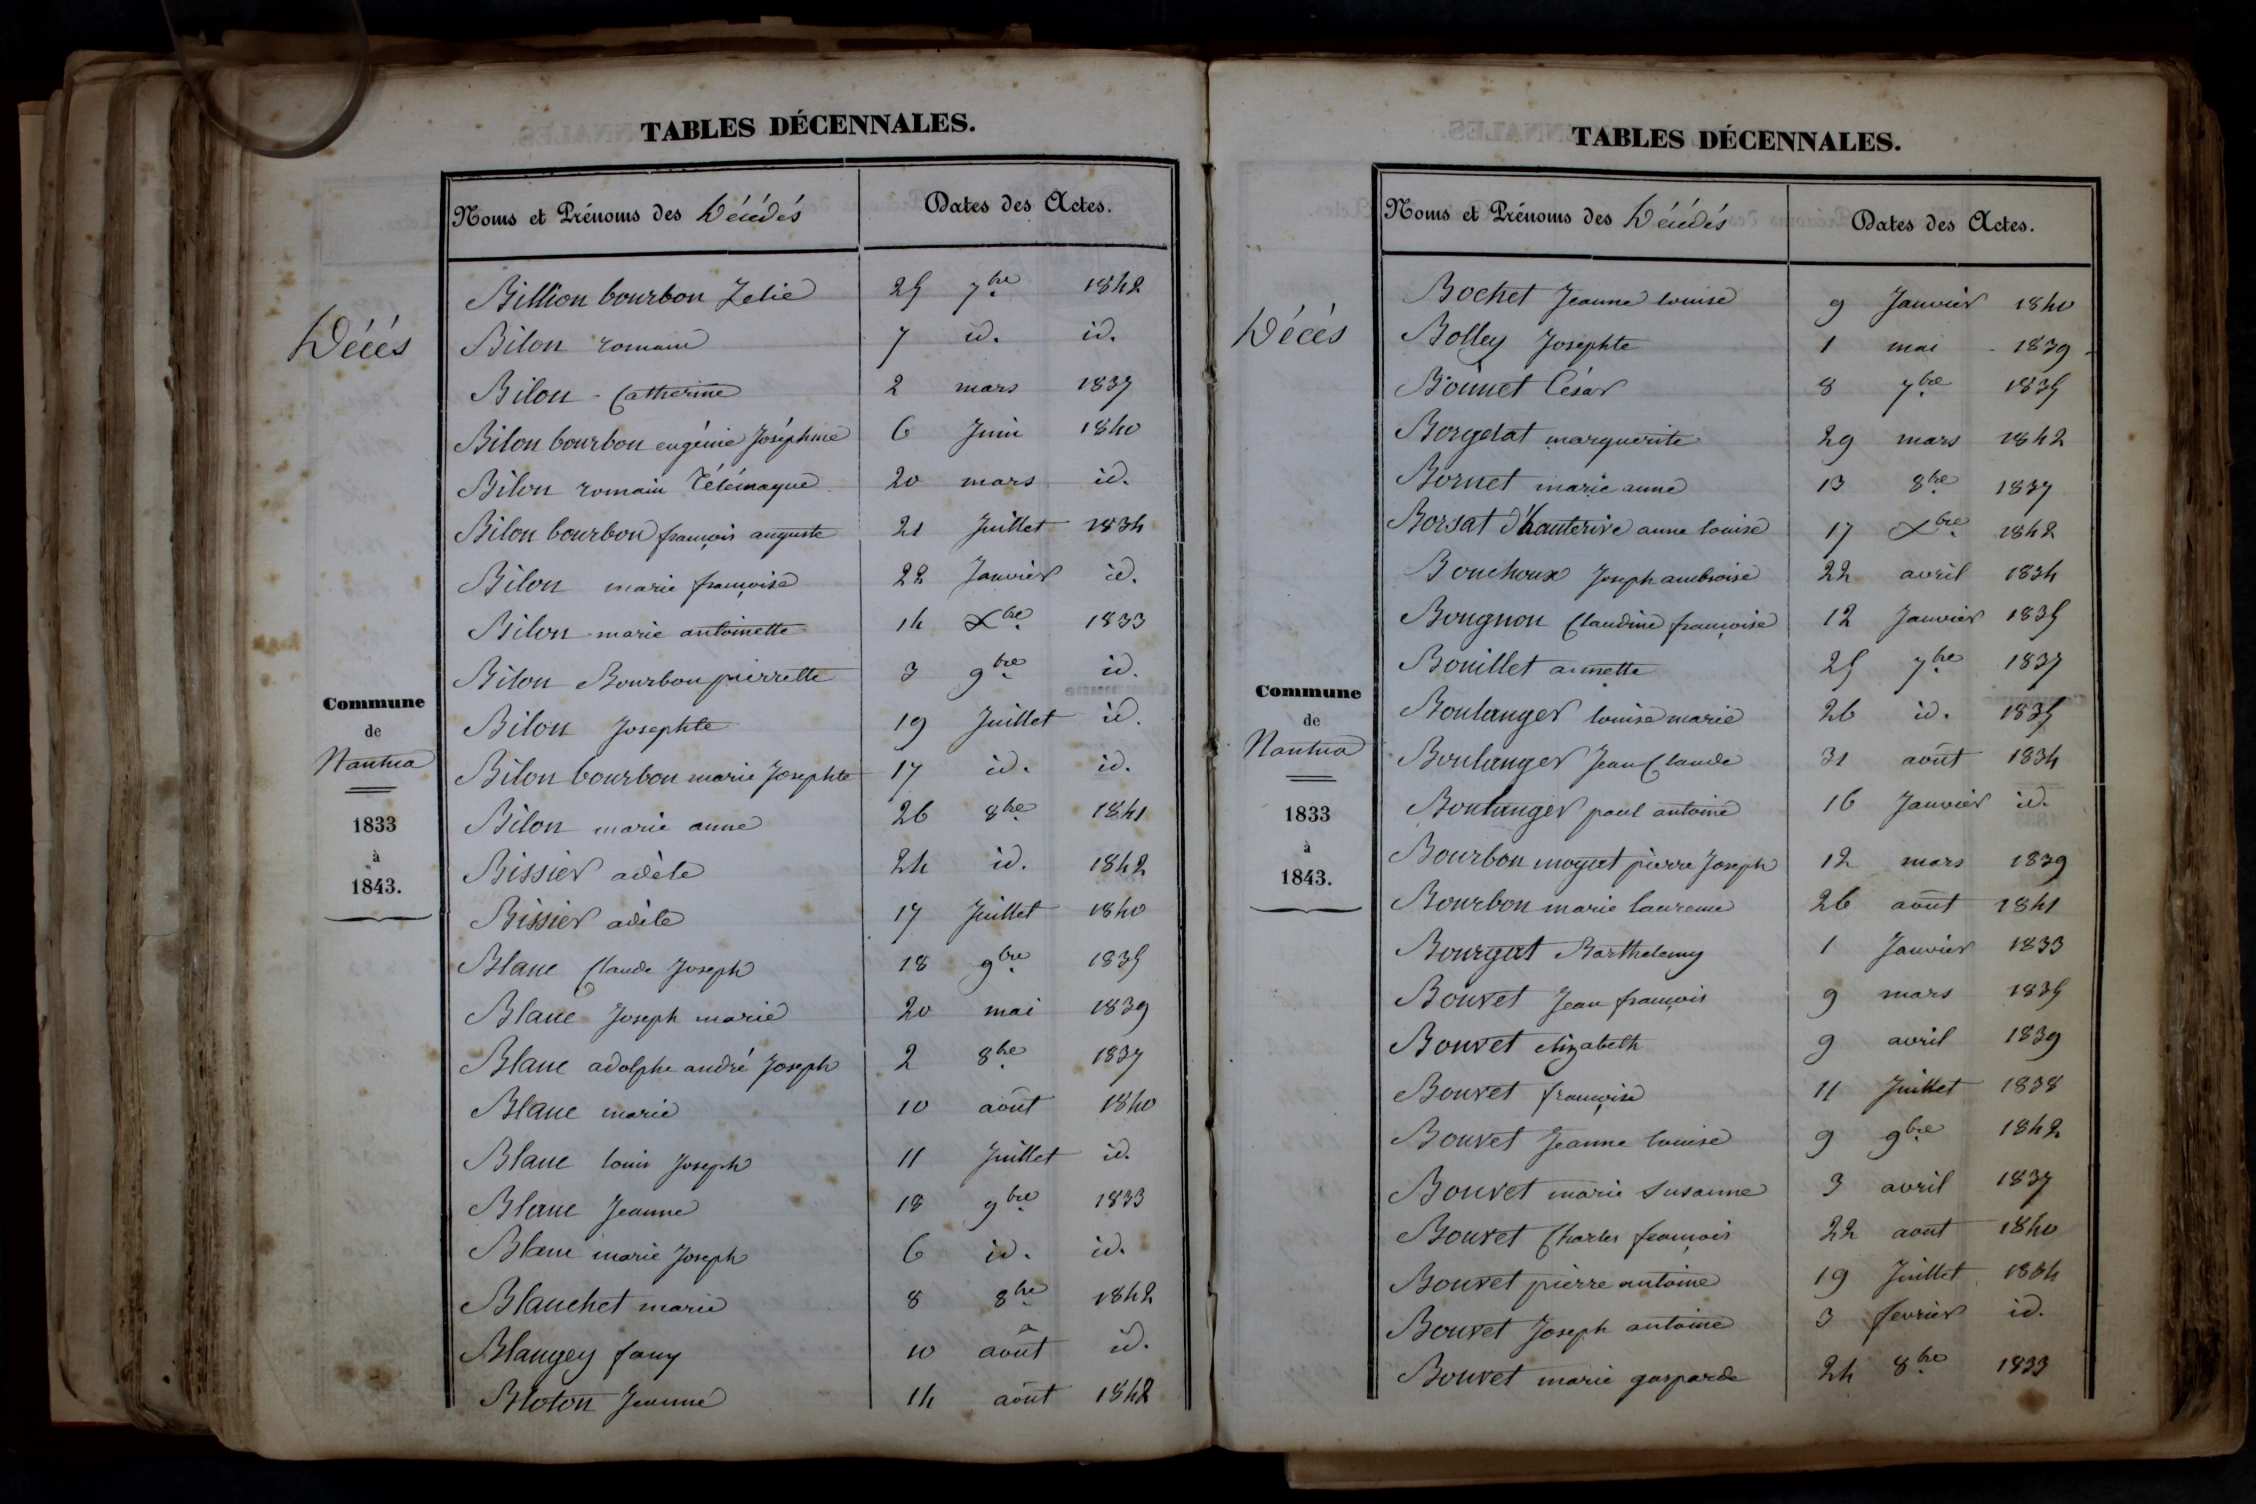 TABLES DÉCENNALES.
Noms et Prénoms des Décédés
Dates des Actes.
Décés
Commune
de
Nantua
1833
à
1843.
Billion bourbon Zelie 25 7bre 1842
Bilon romain 7 id. id.
Bilon Catherine 2 mars 1837
Bilon bourbon eugénie Joséphine 6 Juin 1840
Bilon romain Télémaque 20 mars id.
Bilon bourbon françois auguste 21 Juillet 1834
Bilon marie françoise 22 Janvier id.
Bilon marie antoinette 14 Xbre 1833
Bilon Bourbon pierrette 3 9bre id.
Bilon Josephte 19 Juillet id.
Bilon bourbon marie Josephte 17 id. id.
Bilon marie anne 26 8bre 1841
Bissier adèle 24 id. 1842
Bissier adèle 17 Juillet 1840
Blanc Claude Joseph 18 9bre 1835
Blanc Joseph marie 20 mai 1839
Blanc adolphe andré Joseph 2 8bre 1837
Blanc marie 10 août 1840
Blanc louis Joseph 11 Juillet id.
Blanc Jeanne 18 9bre 1833
Blanc marie Joseph 6 id. id.
Blanchet marie 8 8bre 1842
Blangey fany 10 août id.
Bloton Jeanne 14 août 1842
TABLES DÉCENNALES.
Noms et Prénoms des Décédés
Dates des Actes.
Décés
Commune
de
Nantua
1833
à
1843.
Bochet Jeanne louise 9 Janvier 1840
Bolley Josephte 1 mai 1839
Bonnet César 8 7bre 1835
Borgelat marguerite 29 mars 1842
Bornet marie anne 13 8bre 1837
Borsat d'hauterive anne louise 17 Xbre 1842
Bouchoux Joseph ambroise 22 avril 1834
Bougnon Claudine françoise 12 Janvier 1835
Bouillet annette 25 7bre 1837
Boulanger louise marie 26 id. 1835
Boulanger Jean Claude 31 août 1834
Boulanger paul antoine 16 Janvier id.
Bourbon moyat pierre Joseph 12 mars 1839
Bourbon marie laurence 26 août 1841
Bourgat Barthelemy 1 Janvier 1833
Bouvet Jean françois 9 mars 1835
Bouvet elizabeth 9 avril 1839
Bouvet françoise 11 Juillet 1838
Bouvet Jeanne louise 9 9bre 1842
Bouvet marie Susanne 3 avril 1837
Bouvet Charles françois 22 aout 1840
Bouvet pierre antoine 19 Juillet 1834
Bouvet Joseph antoine 3 fevrier id.
Bouvet marie gasparde 24 8bre 1833